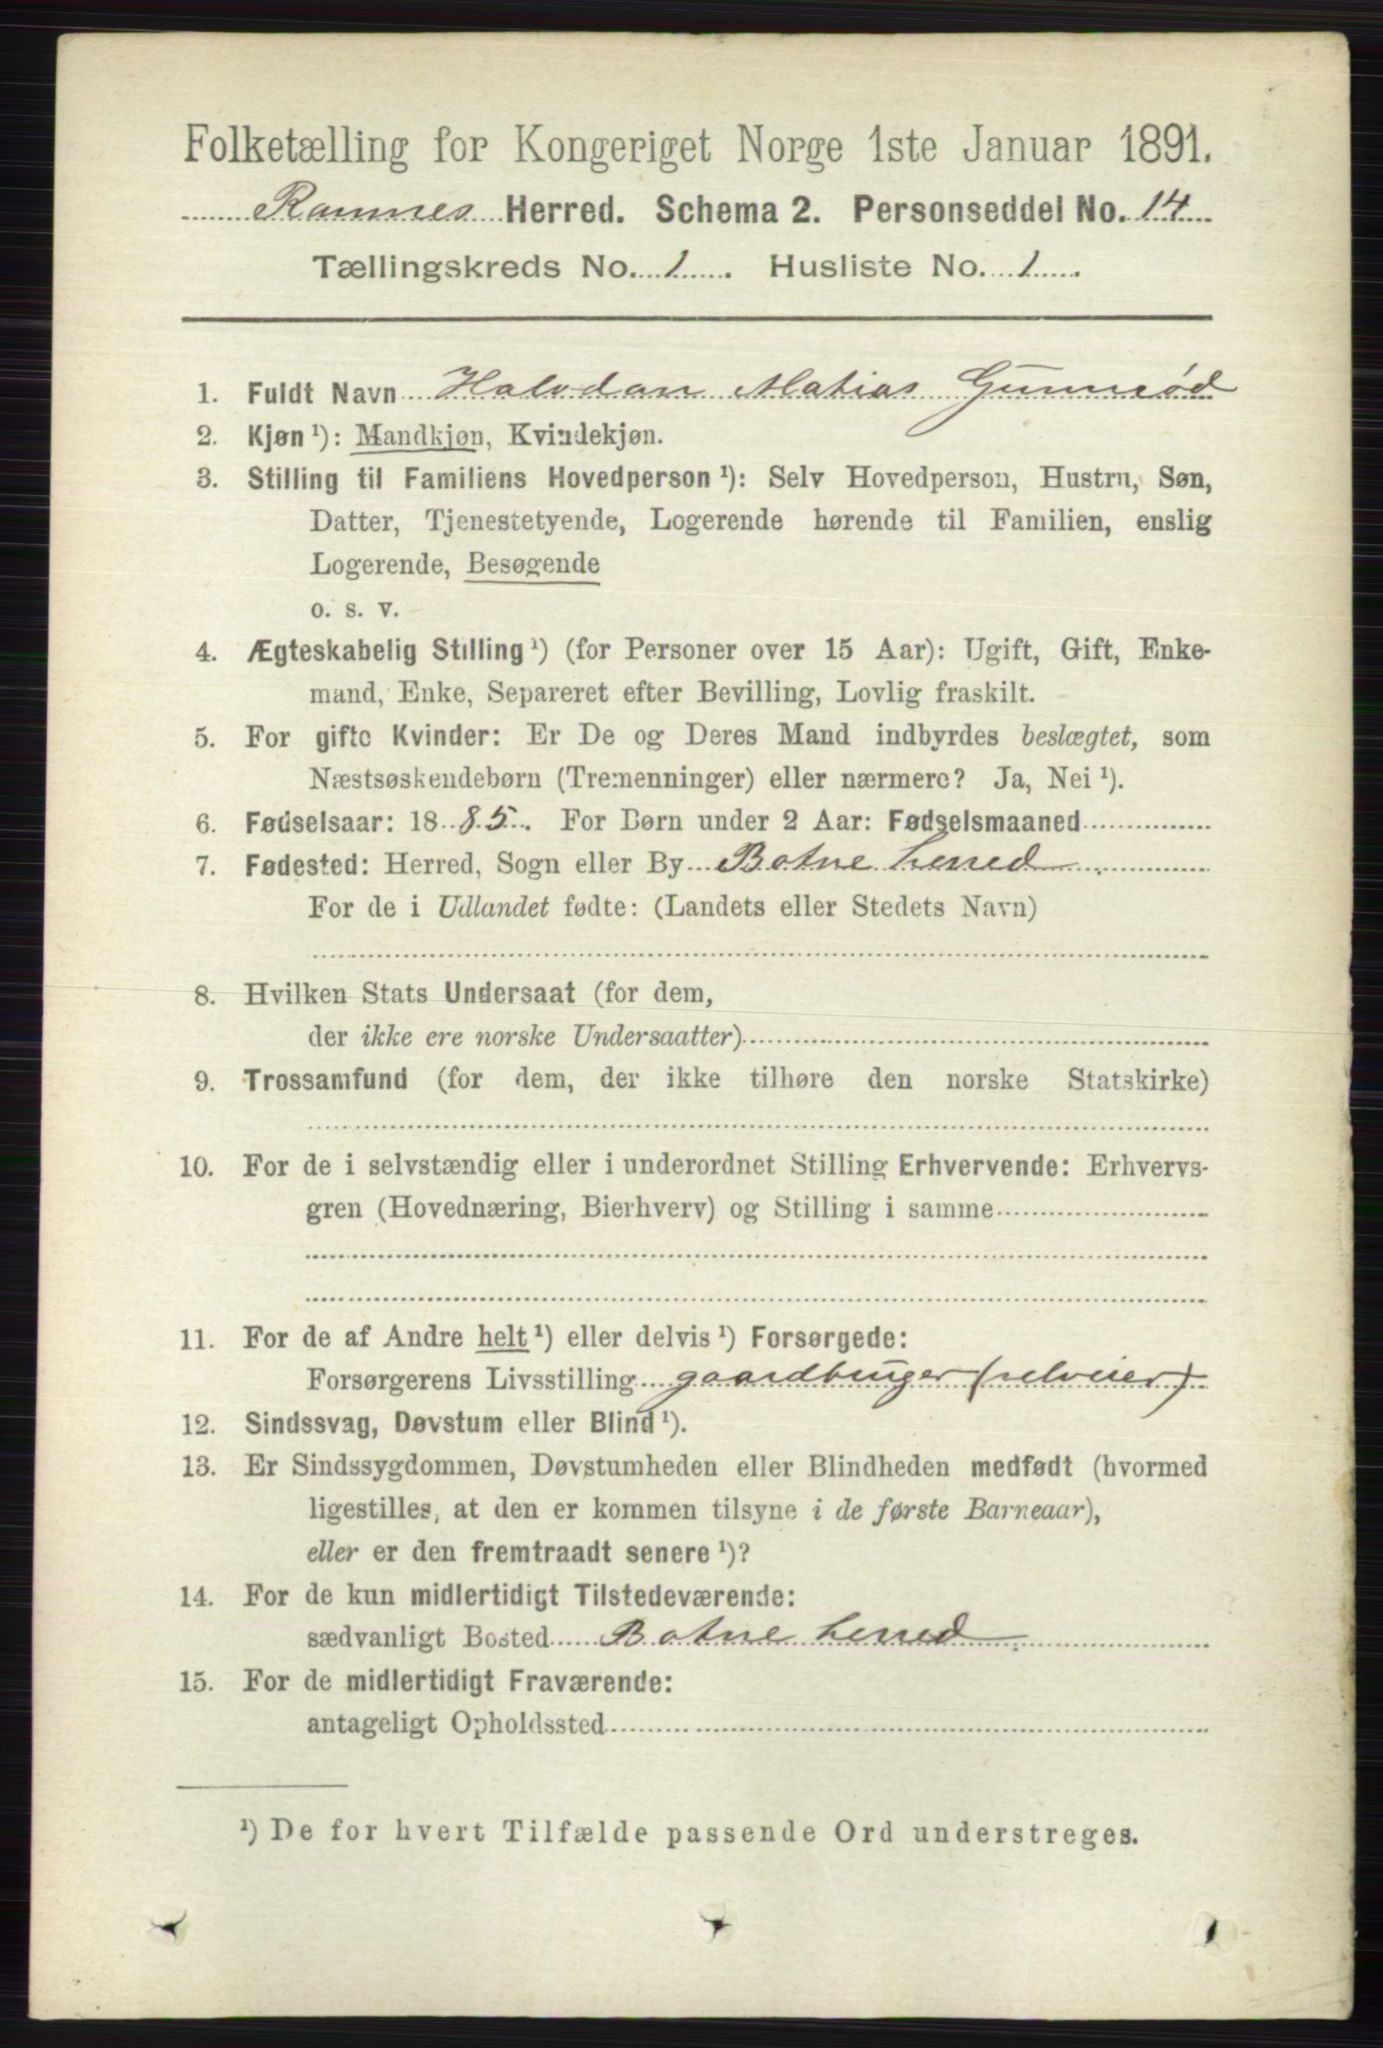 Folketælling for Kongeriget Norge 1ste Januar 1891.
Ramnes Herred. Schema 2. Personseddel No. 14
Tællingskreds No. 1. Husliste No. 1.
1. Fuldt Navn Halvdan Matias Gunnerød
2. Kjøn ¹): Mandkjøn, Kvindekjøn.
3. Stilling til Familiens Hovedperson ¹): Selv Hovedperson, Hustru, Søn,
Datter, Tjenestetyende, Logerende hørende til Familien, enslig
Logerende, Besøgende
o. s. v.
4. Ægteskabelig Stilling ¹) (for Personer over 15 Aar): Ugift, Gift, Enke-
mand, Enke, Separeret efter Bevilling, Lovlig fraskilt.
5. For gifte Kvinder: Er De og Deres Mand indbyrdes beslægtet, som
Næstsøskendebørn (Tremenninger) eller nærmere? Ja, Nei ¹).
6. Fødselsaar: 1885. For Børn under 2 Aar: Fødselsmaaned
7. Fødested: Herred, Sogn eller By Botne herred
For de i Udlandet fødte: (Landets eller Stedets Navn)
8. Hvilken Stats Undersaat (for dem,
der ikke ere norske Undersaatter)
9. Trossamfund (for dem, der ikke tilhøre den norske Statskirke)
10. For de i selvstændig eller i underordnet Stilling Erhvervende: Erhvervs-
gren (Hovednæring, Bierhverv) og Stilling i samme
11. For de af Andre helt ¹) eller delvis ¹) Forsørgede:
Forsørgerens Livsstilling gaardbruger (selveier)
12. Sindssvag, Døvstum eller Blind ¹).
13. Er Sindssygdommen, Døvstumheden eller Blindheden medfødt (hvormed
ligestilles, at den er kommen tilsyne i de første Barneaar),
eller er den fremtraadt senere ¹)?
14. For de kun midlertidigt Tilstedeværende:
sædvanligt Bosted Botne herred
15. For de midlertidigt Fraværende:
antageligt Opholdssted
¹) De for hvert Tilfælde passende Ord understreges.